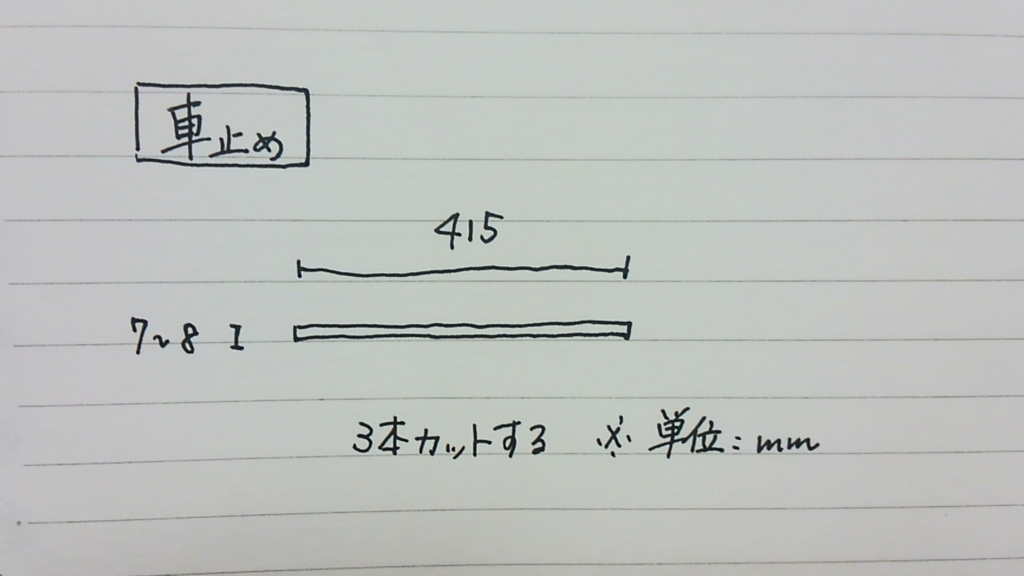 車止め
415
7~8
3本カットする ※単位:mm